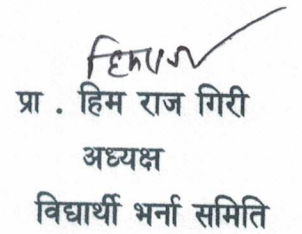 प्रा . हिम राज गिरी
अध्यक्ष
विद्यार्थी भर्ना समिति